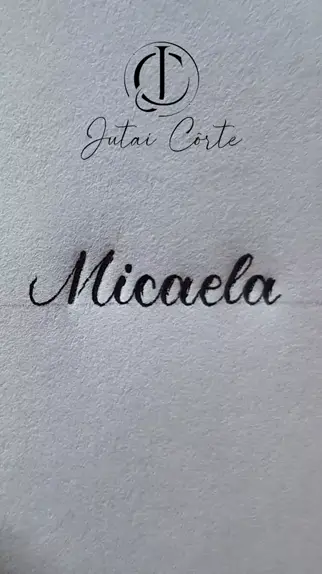 JC
Jutai Côrte
Micaela